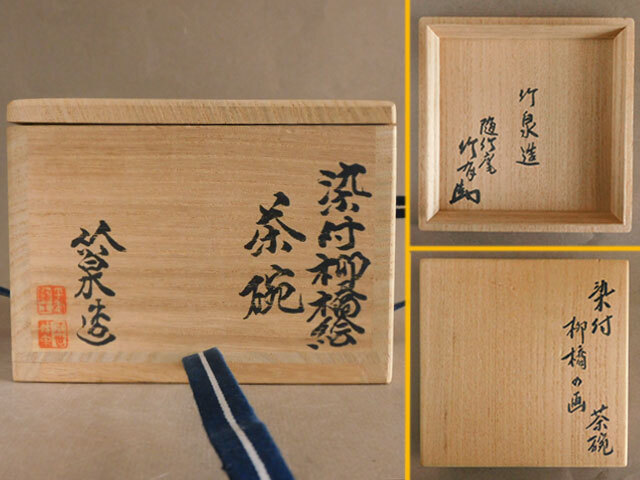 染付柳橋絵
茶碗
竹泉造
竹泉造
随竹庵
竹有
染付
柳橋の画
茶碗